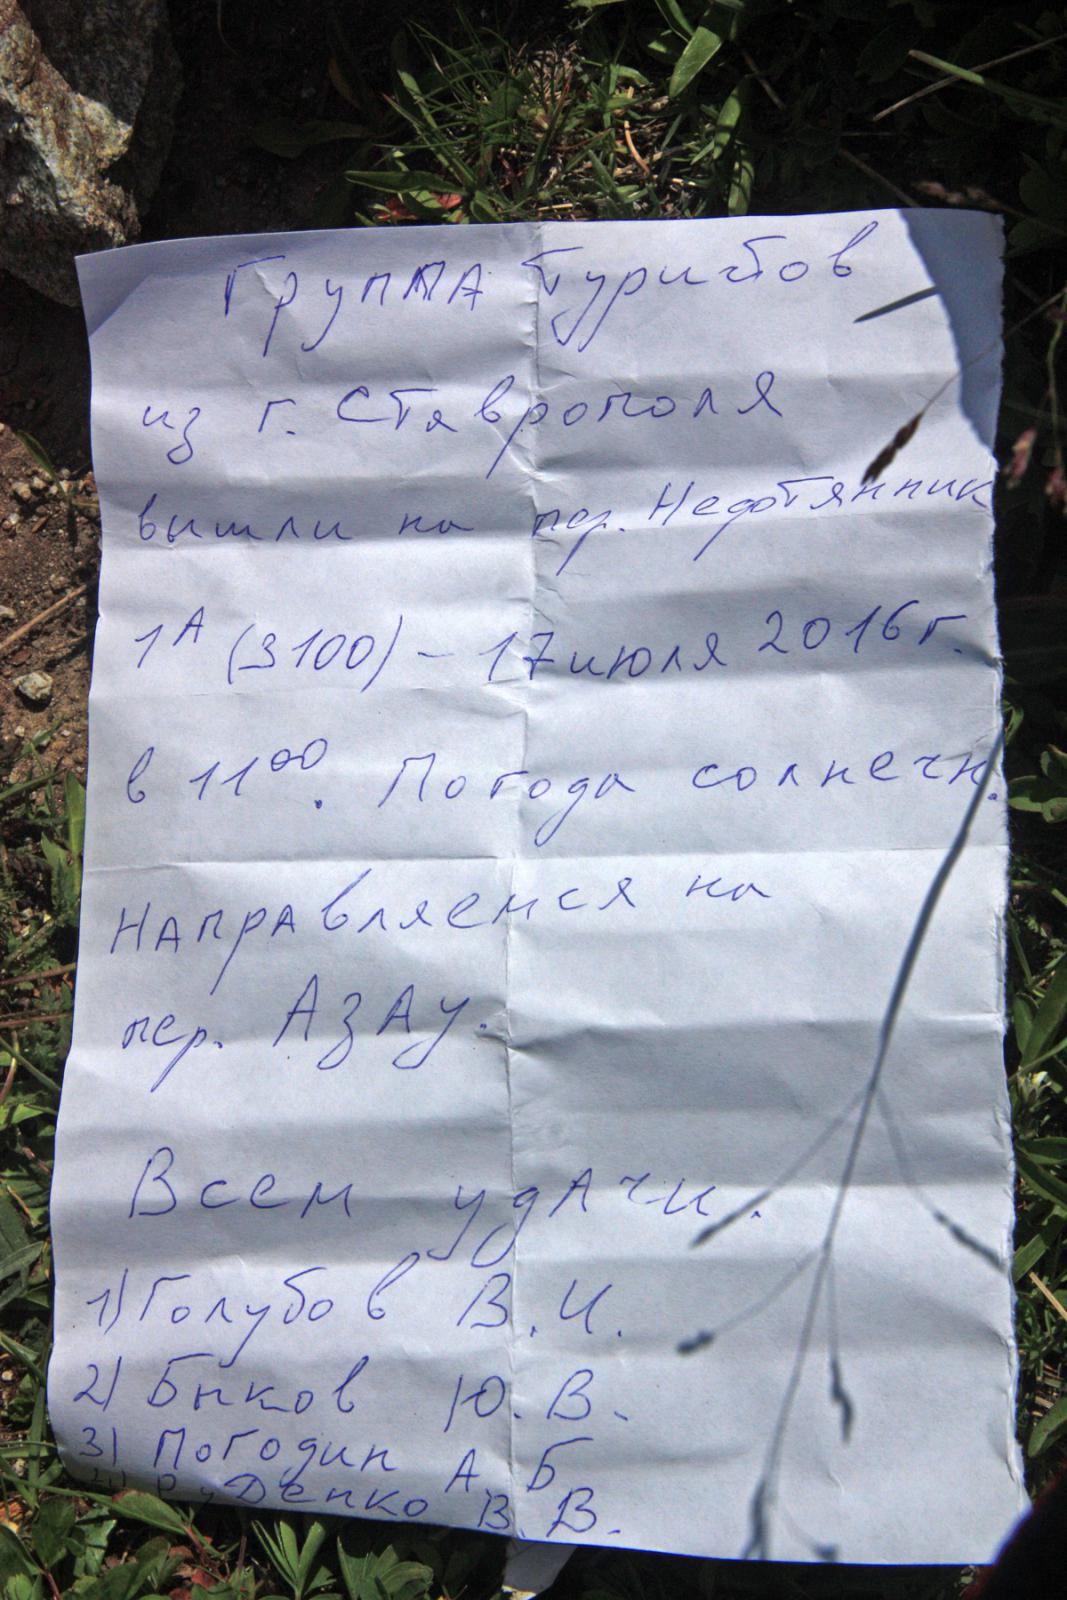 Группа туристов
из г. Ставрополя
вышли на пер. Нефтянник
1А (3100) – 17 июля 2016 г.
в 11⁰⁰. Погода солнечн.
Направляемся на
пер. Азау.
Всем удачи.
1) Голубов В. И.
2) Быков Ю. В.
3) Погодин А. Б
4) Руденко В. В.